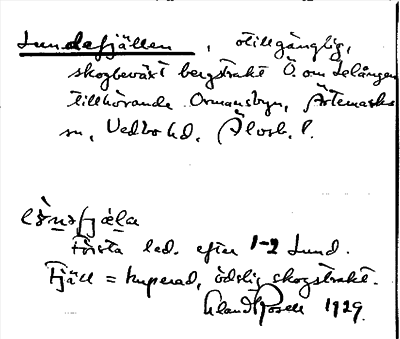 Lundefjällen, otillgänglig,
skogbeväxt bergstrakt Ö. om Lelången
tillhörande Ormansbyn, Ärtemarks
sn, Vedbo hd, Älvsb. l.
första led. efter 1-2 Lund.
Fjäll = kuperad, ödslig skogstrakt.
1929.